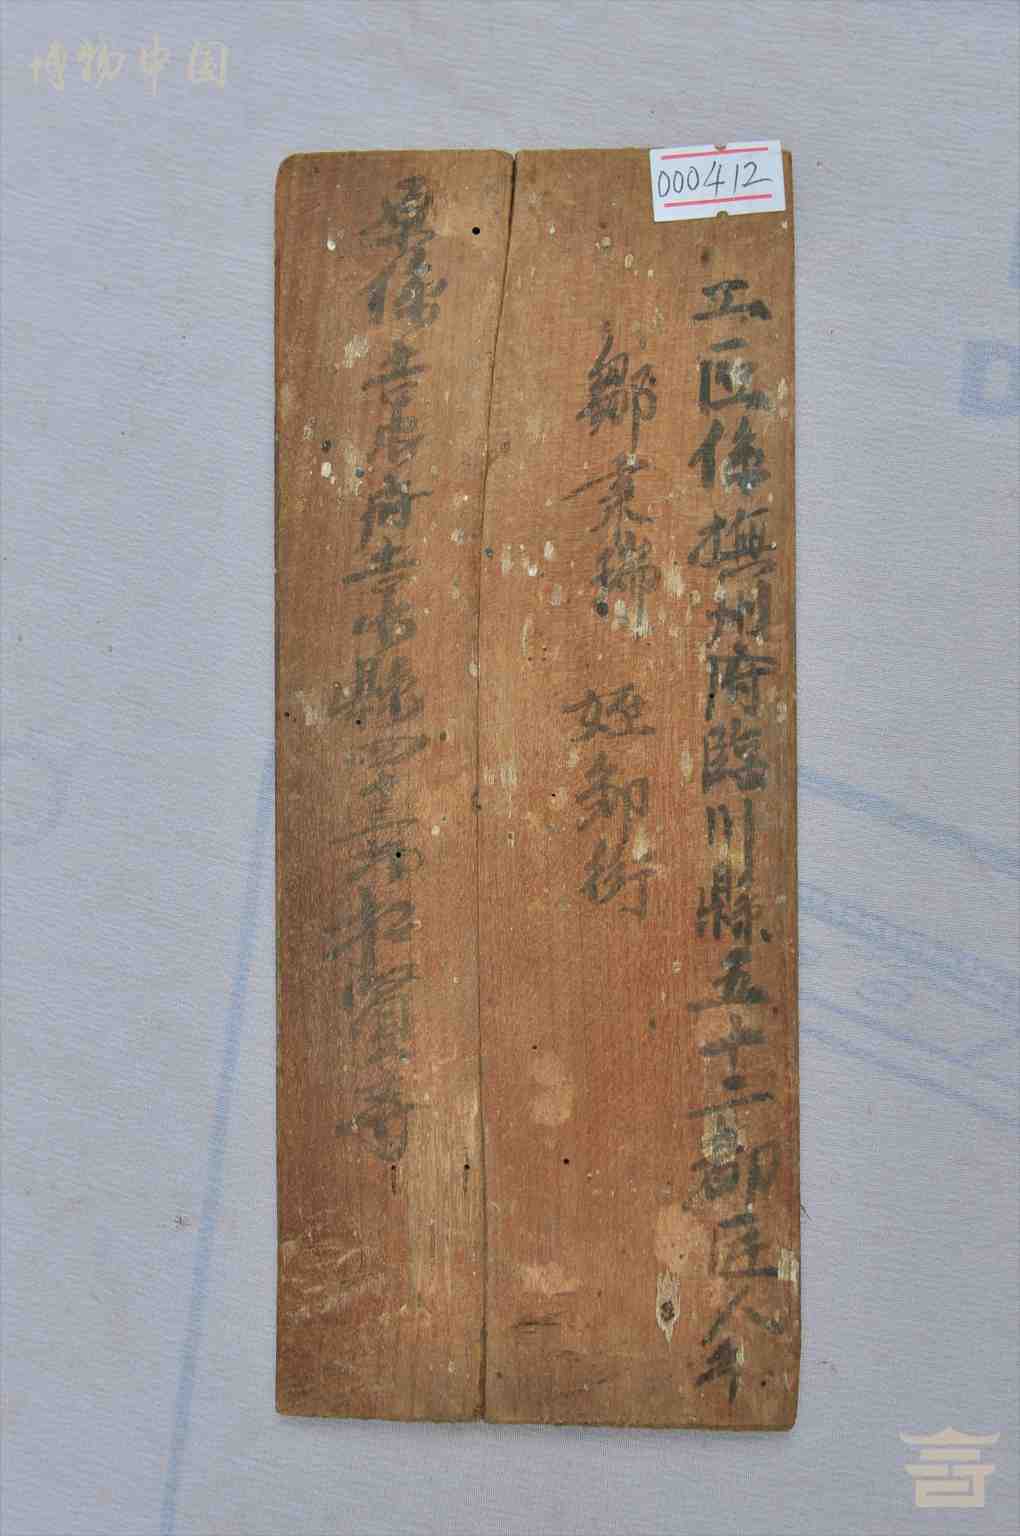 博物中国
000412
工匠係撫州府臨川縣五十二都匠人年
鄒業瑞 姪鄒衔
原係吉安府吉水縣四十三都